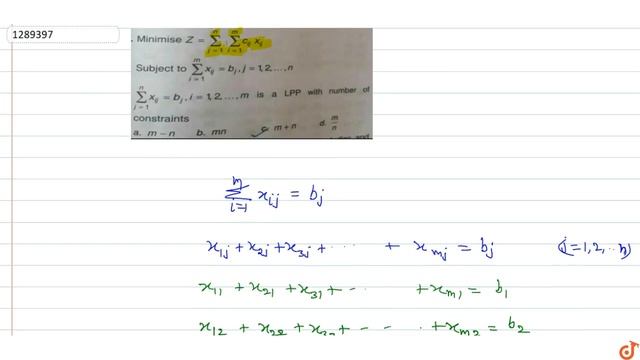 1289397
. Minimise Z = ∑_{j=1}^{n} ∑_{i=1}^{m} c_{ij} x_{ij}
Subject to ∑_{i=1}^{m} x_{ij} = b_j, j = 1, 2, ..., n
∑_{j=1}^{n} x_{ij} = b_j, i = 1, 2, ..., m is a LPP with number of
constraints
a. m − n b. mn c. m + n d. m/n
and
∑_{i=1}^{m} x_{ij} = b_j
x_{1j} + x_{2j} + x_{3j} + ... + x_{mj} = b_j (j = 1, 2, ... n)
x_{11} + x_{21} + x_{31} + - .. + x_{m1} = b_1
x_{12} + x_{22} + x_{32} + - - . + x_{m2} = b_2